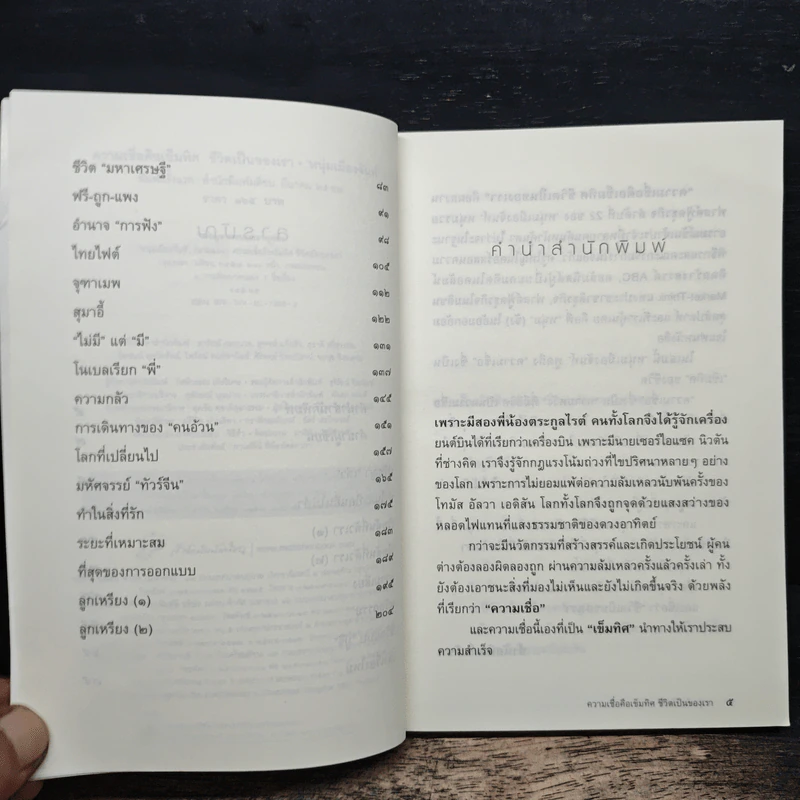 ชีวิต “มหาเศรษฐี” ๘๓
ฟรี-ถูก-แพง ๙๑
อำนาจ “การฟัง” ๙๘
ไทยไฟต์ ๑๐๕
จุฑาเมพ ๑๑๒
สุมาอี้ ๑๒๒
“ไม่มี” แต่ “มี” ๑๓๑
โนเบลเรียก “พี่” ๑๓๗
ความกลัว ๑๔๕
การเดินทางของ “คนอ้วน” ๑๕๑
โลกที่เปลี่ยนไป ๑๕๗
มหัศจรรย์ “ทัวร์จีน” ๑๖๕
ทำในสิ่งที่รัก ๑๗๕
ระยะที่เหมาะสม ๑๘๓
ที่สุดของการออกแบบ ๑๘๙
ลูกเหรียง (๑) ๑๙๕
ลูกเหรียง (๒) ๒๐๔
คำนำสำนักพิมพ์
เพราะมีสองพี่น้องตระกูลไรต์ คนทั้งโลกจึงได้รู้จักเครื่อง
ยนต์บินได้ที่เรียกว่าเครื่องบิน เพราะมีนายเซอร์ไอแซค นิวตัน
ที่ช่างคิด เราจึงรู้จักกฎแรงโน้มถ่วงที่ไขปริศนาหลายๆ อย่าง
ของโลก เพราะการไม่ยอมแพ้ต่อความล้มเหลวนับพันครั้งของ
โทมัส อัลวา เอดิสัน โลกทั้งโลกจึงถูกจุดด้วยแสงสว่างของ
หลอดไฟแทนที่แสงธรรมชาติของดวงอาทิตย์
กว่าจะมีนวัตกรรมที่สร้างสรรค์และเกิดประโยชน์ ผู้คน
ต่างต้องลองผิดลองถูก ผ่านความล้มเหลวครั้งแล้วครั้งเล่า ทั้ง
ยังต้องเอาชนะสิ่งที่มองไม่เห็นและยังไม่เกิดขึ้นจริง ด้วยพลัง
ที่เรียกว่า “ความเชื่อ”
และความเชื่อนี้เองที่เป็น “เข็มทิศ” นำทางให้เราประสบ
ความสำเร็จ
ความเชื่อคือเข็มทิศ ชีวิตเป็นของเรา ๕